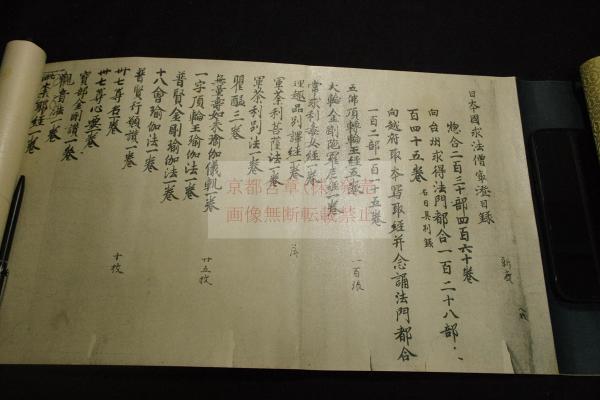 日本國求法僧寂澄目錄
惣合二百三十部四百六十卷
向台州求得法門都合一百二十八部
百四十五卷 右目具別錄
向越府取本寫取經并念誦法門都合
一百二部一百十五卷
五佛頂轉輪王經五卷 一百張
大輪金剛陀羅尼經一卷
當求利毒女經一卷
理趣品別譯經一卷
軍荼利菩薩法一卷
軍荼利別法一卷
瞿醯三卷
無量壽如來瑜伽儀軌一卷
一字頂輪王瑜伽法一卷 廿五枚
普賢金剛瑜伽法一卷
十八會瑜伽法一卷
普賢行願讚一卷
卅七尊名卷 十枚
卅七尊心要卷
寶部金剛讚一卷
觀音法一卷
京都古章(株)発売
画像無断転載禁止